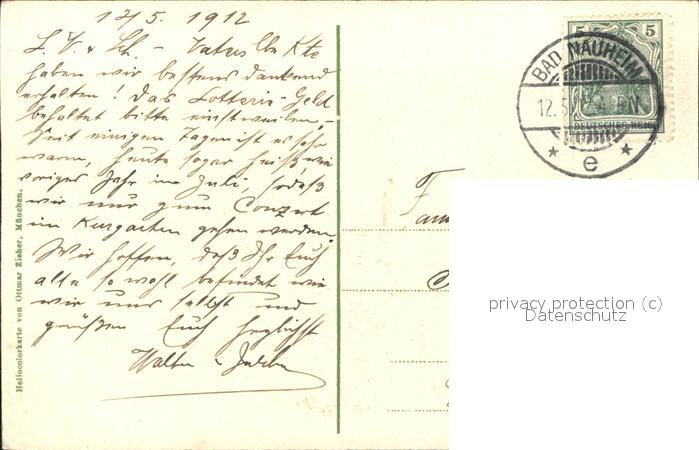 12/5. 1912
L. V. u. Sch. – Vaters lbe Kte
haben wir bestens dankend
erhalten! Das Lotterie-Geld
behaltet bitte einstweilen. –
Seit einigen Tagen ist es sehr
warm, heute sogar heiß, wie
voriges Jahr im Juli, sodaß
wir nur zum Conzert
im Kurgarten gehen werden.
Wir hoffen, daß Ihr Euch
alle so wohl befindet wie
wir uns selbst und
grüßen Euch herzlichst
Walter u.
Heliocolorkarte von Ottmar Zieher, München.
5 5
BAD NAUHEIM
12.5
DEUTSCHES REICH
* e *
Fam
privacy protection (c)
Datenschutz